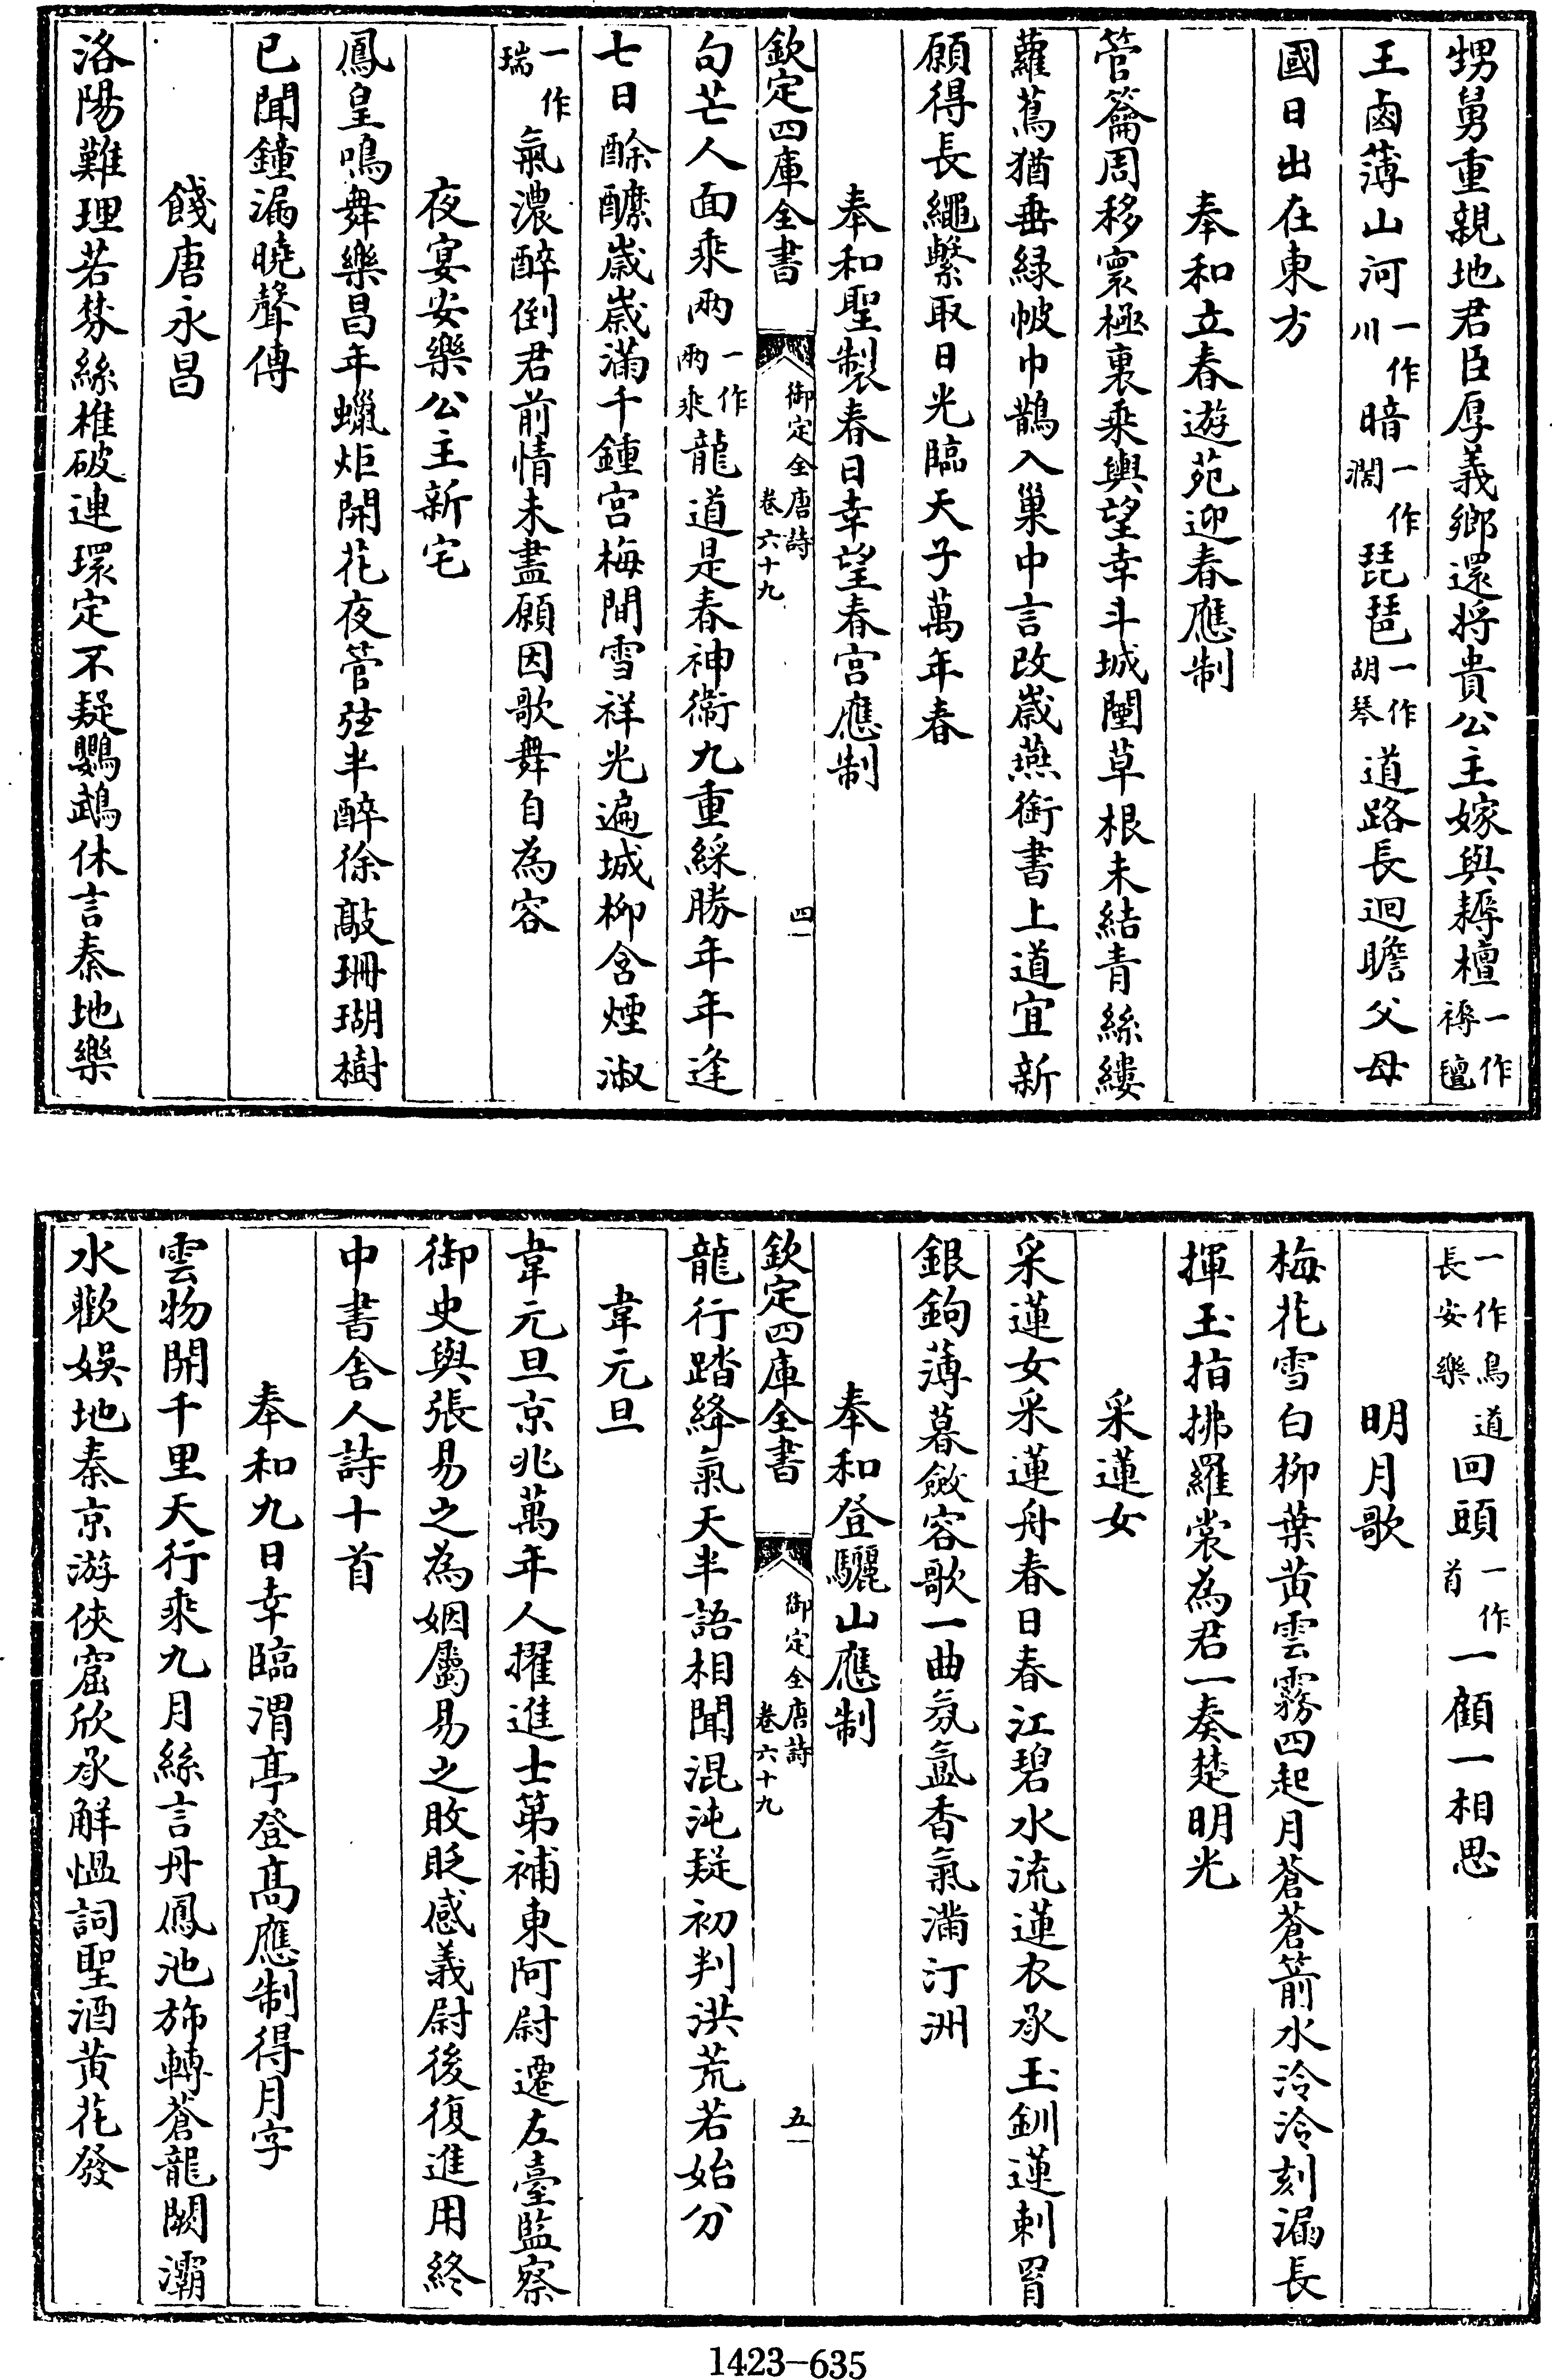 甥舅重親地君臣厚義鄉還将貴公主嫁與耨檀一作褥氊
王鹵薄山河一作川暗一作濶琵琶一作胡琴道路長迴瞻父母
國日出在東方
奉和立春遊苑迎春應制
管籥周移寰極裏乘輿望幸斗城闉草根未結青絲縷
蘿蔦猶垂緑帔巾鵲入巢中言改歲燕銜書上道宜新
願得長繩繫取日光臨天子萬年春
奉和聖製春日幸望春宫應制
欽定四庫全書
御定全唐詩
卷六十九
四
句芒人面乘兩一作兩乘龍道是春神衛九重綵勝年年逢
七日酴醿歲歲滿千鍾宫梅間雪祥光遍城柳含煙淑
一作瑞氣濃醉倒君前情未盡願因歌舞自為容
夜宴安樂公主新宅
鳳皇鳴舞樂昌年蠟炬開花夜管弦半醉徐敲珊瑚樹
已聞鐘漏曉聲傳
餞唐永昌
洛陽難理若棼絲椎破連環定不疑鸚鵡休言秦地樂
一作鳥道長安樂回頭一作首一顧一相思
明月歌
梅花雪白柳葉黄雲霧四起月蒼蒼箭水泠泠刻漏長
揮玉指拂羅裳為君一奏楚明光
采蓮女
采蓮女采蓮舟春日春江碧水流蓮衣承玉釧蓮刺罥
銀鉤薄暮斂容歌一曲氛氲香氣滿汀洲
奉和登驪山應制
欽定四庫全書
御定全唐詩
卷六十九
五
龍行踏絳氣天半語相聞混沌疑初判洪荒若始分
韋元旦
韋元旦京兆萬年人擢進士第補東阿尉遷左臺監察
御史與張易之為姻屬易之敗貶感義尉後復進用終
中書舍人詩十首
奉和九日幸臨渭亭登髙應制得月字
雲物開千里天行乘九月絲言丹鳳池斾轉蒼龍闕灞
水歡娛地秦京游俠窟欣承解愠詞聖酒黄花發
1423-635